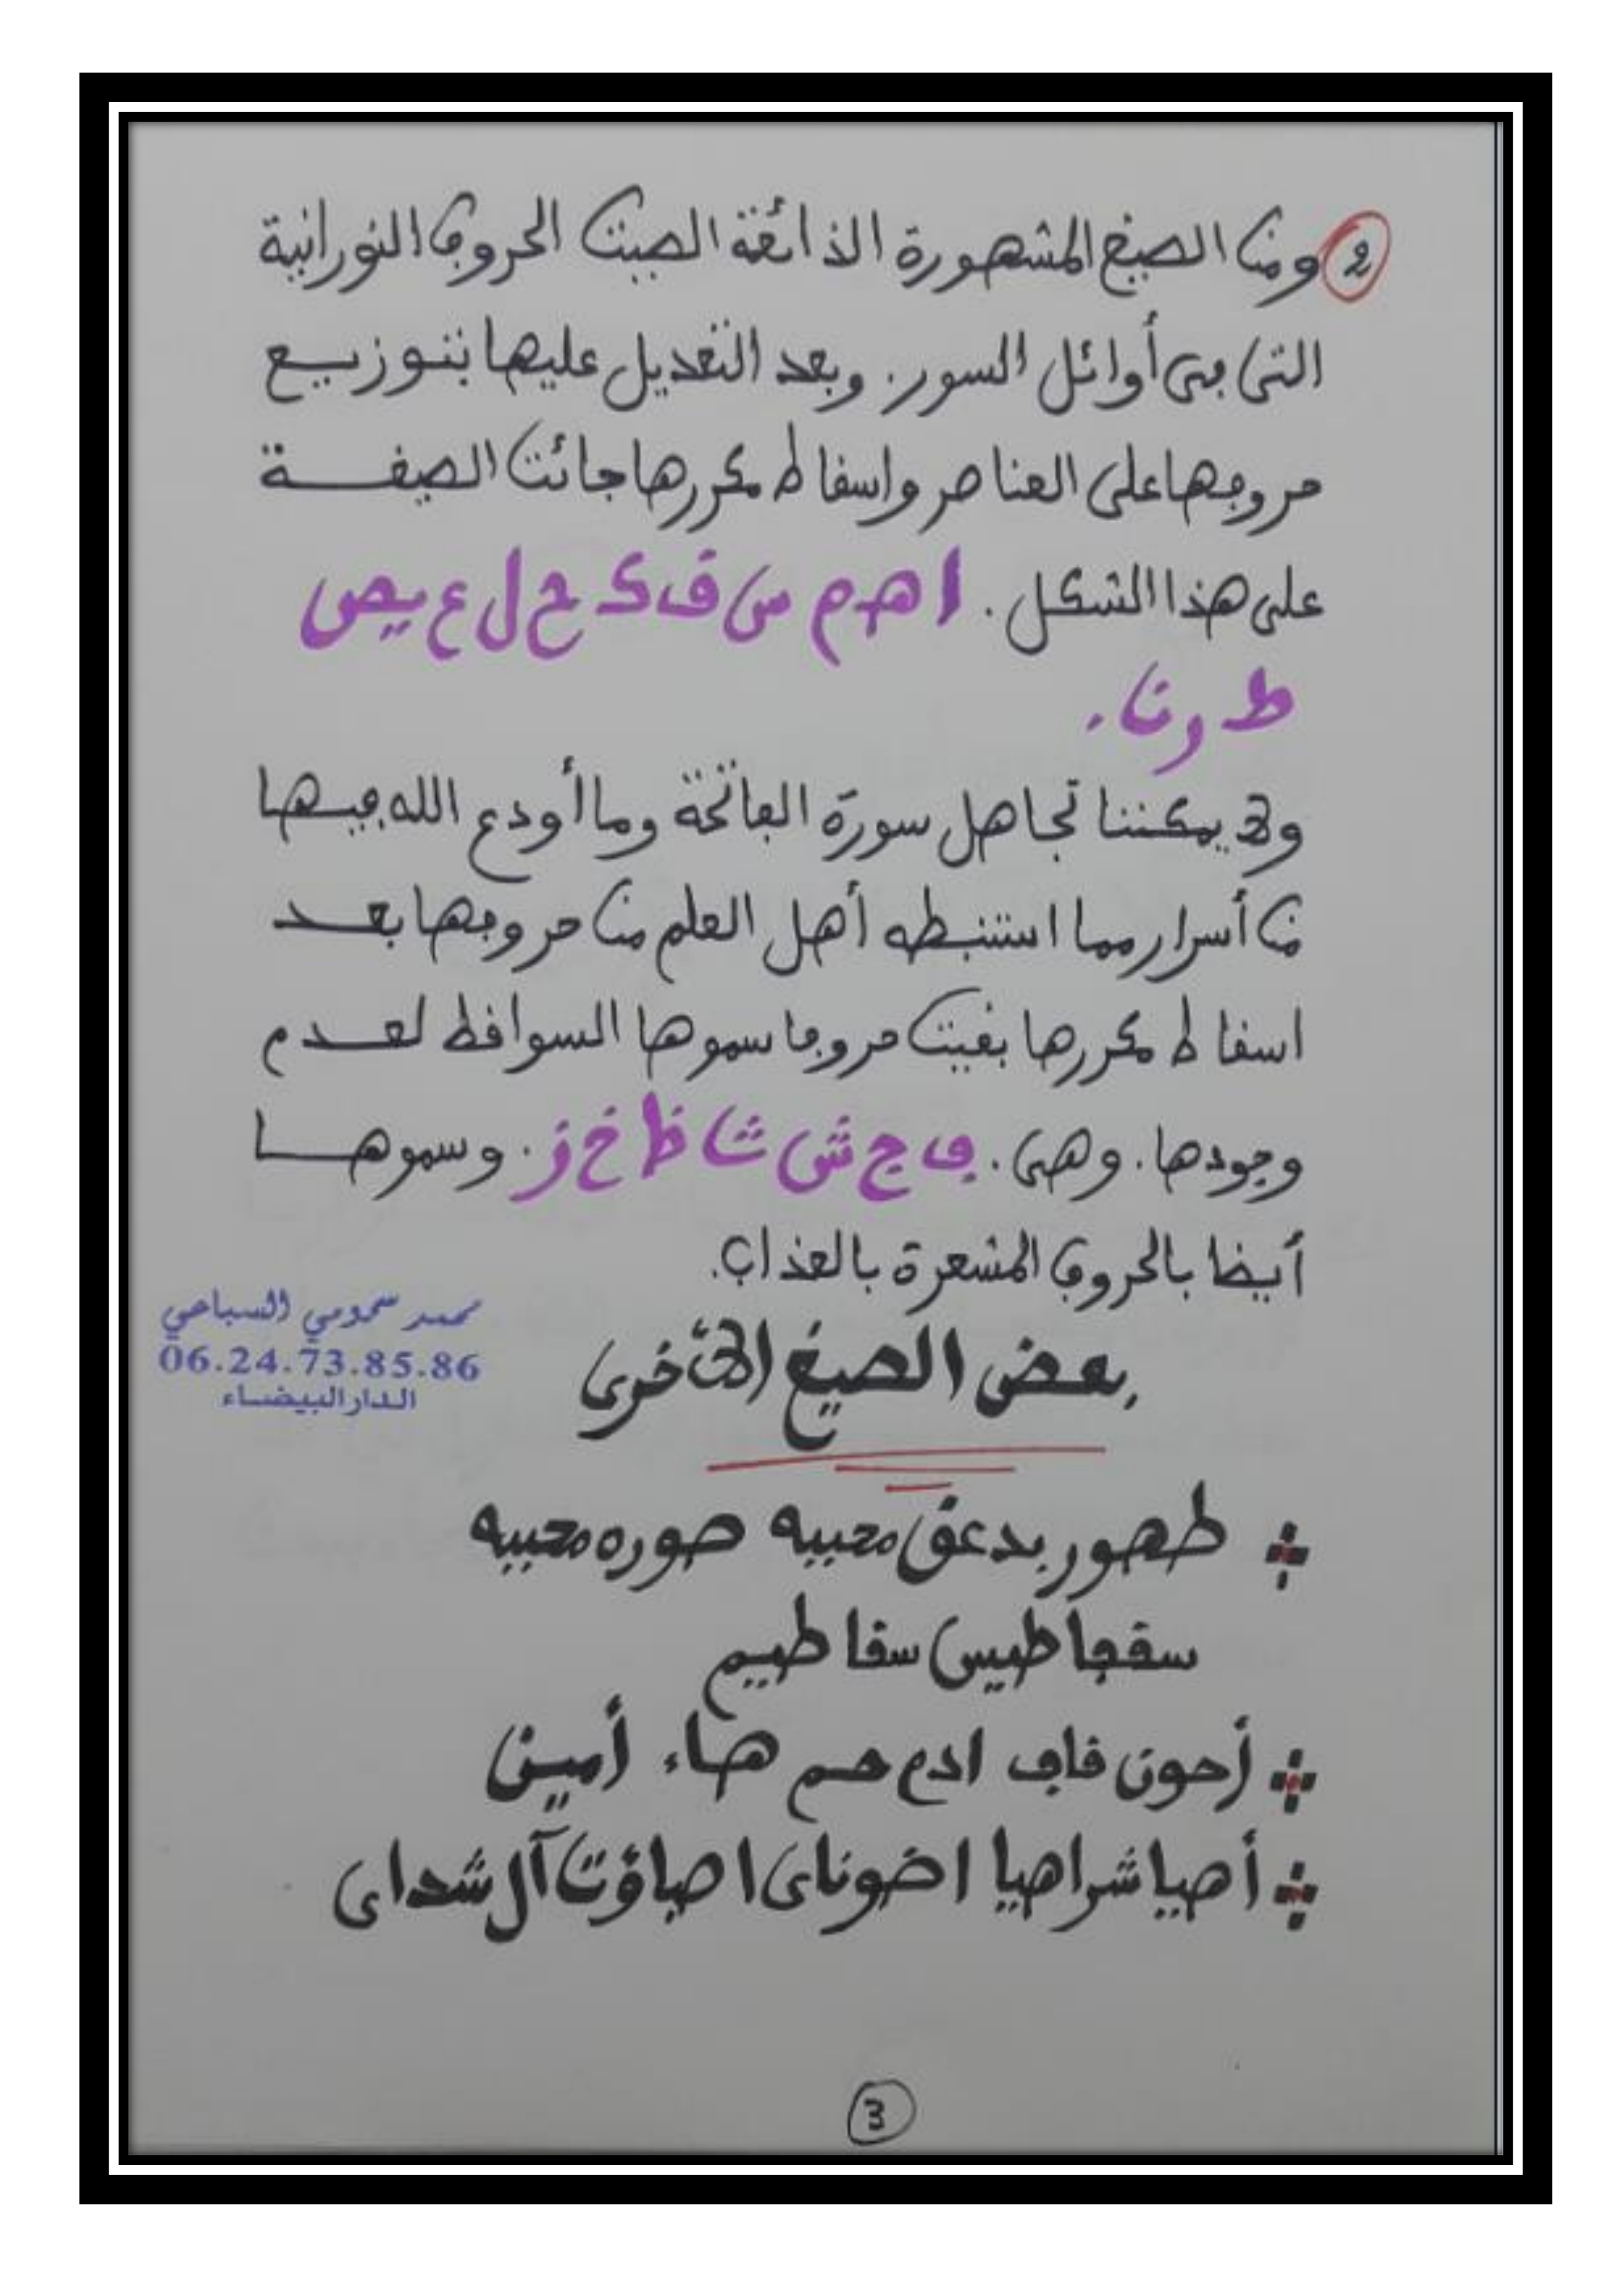 2 ومن الصيغ المشهورة الذائعة الصيت الحروف النورانية
التي في أوائل السور. وبعد التعديل عليها بتوزيع
حروفها على العناصر واسقاط مكررها جائت الصيغة
على هذا الشكل. ا ه م س ق ك ح ل ع ي ص
ط ر ن.
ولا يمكننا تجاهل سورة الفاتحة وما أودع الله فيها
من أسرار مما استنبطه أهل العلم من حروفها بعد
اسقاط مكررها بقيت حروفا سموها السواقط لعدم
وجودها. وهي. ف ج ش ث ظ خ ز. وسموها
أيضا بالحروف المشعرة بالعذاب.
محمد سحومي السباعي
06.24.73.85.86
الدار البيضاء
بعض الصيغ الأخرى
طهور بدعق محببه صوره محببه
سقفاطيس سقاطيم
أحون قاف ادم حم هاء أمين
أهيا شراهيا اضوناى اصباؤت آل شداى
3